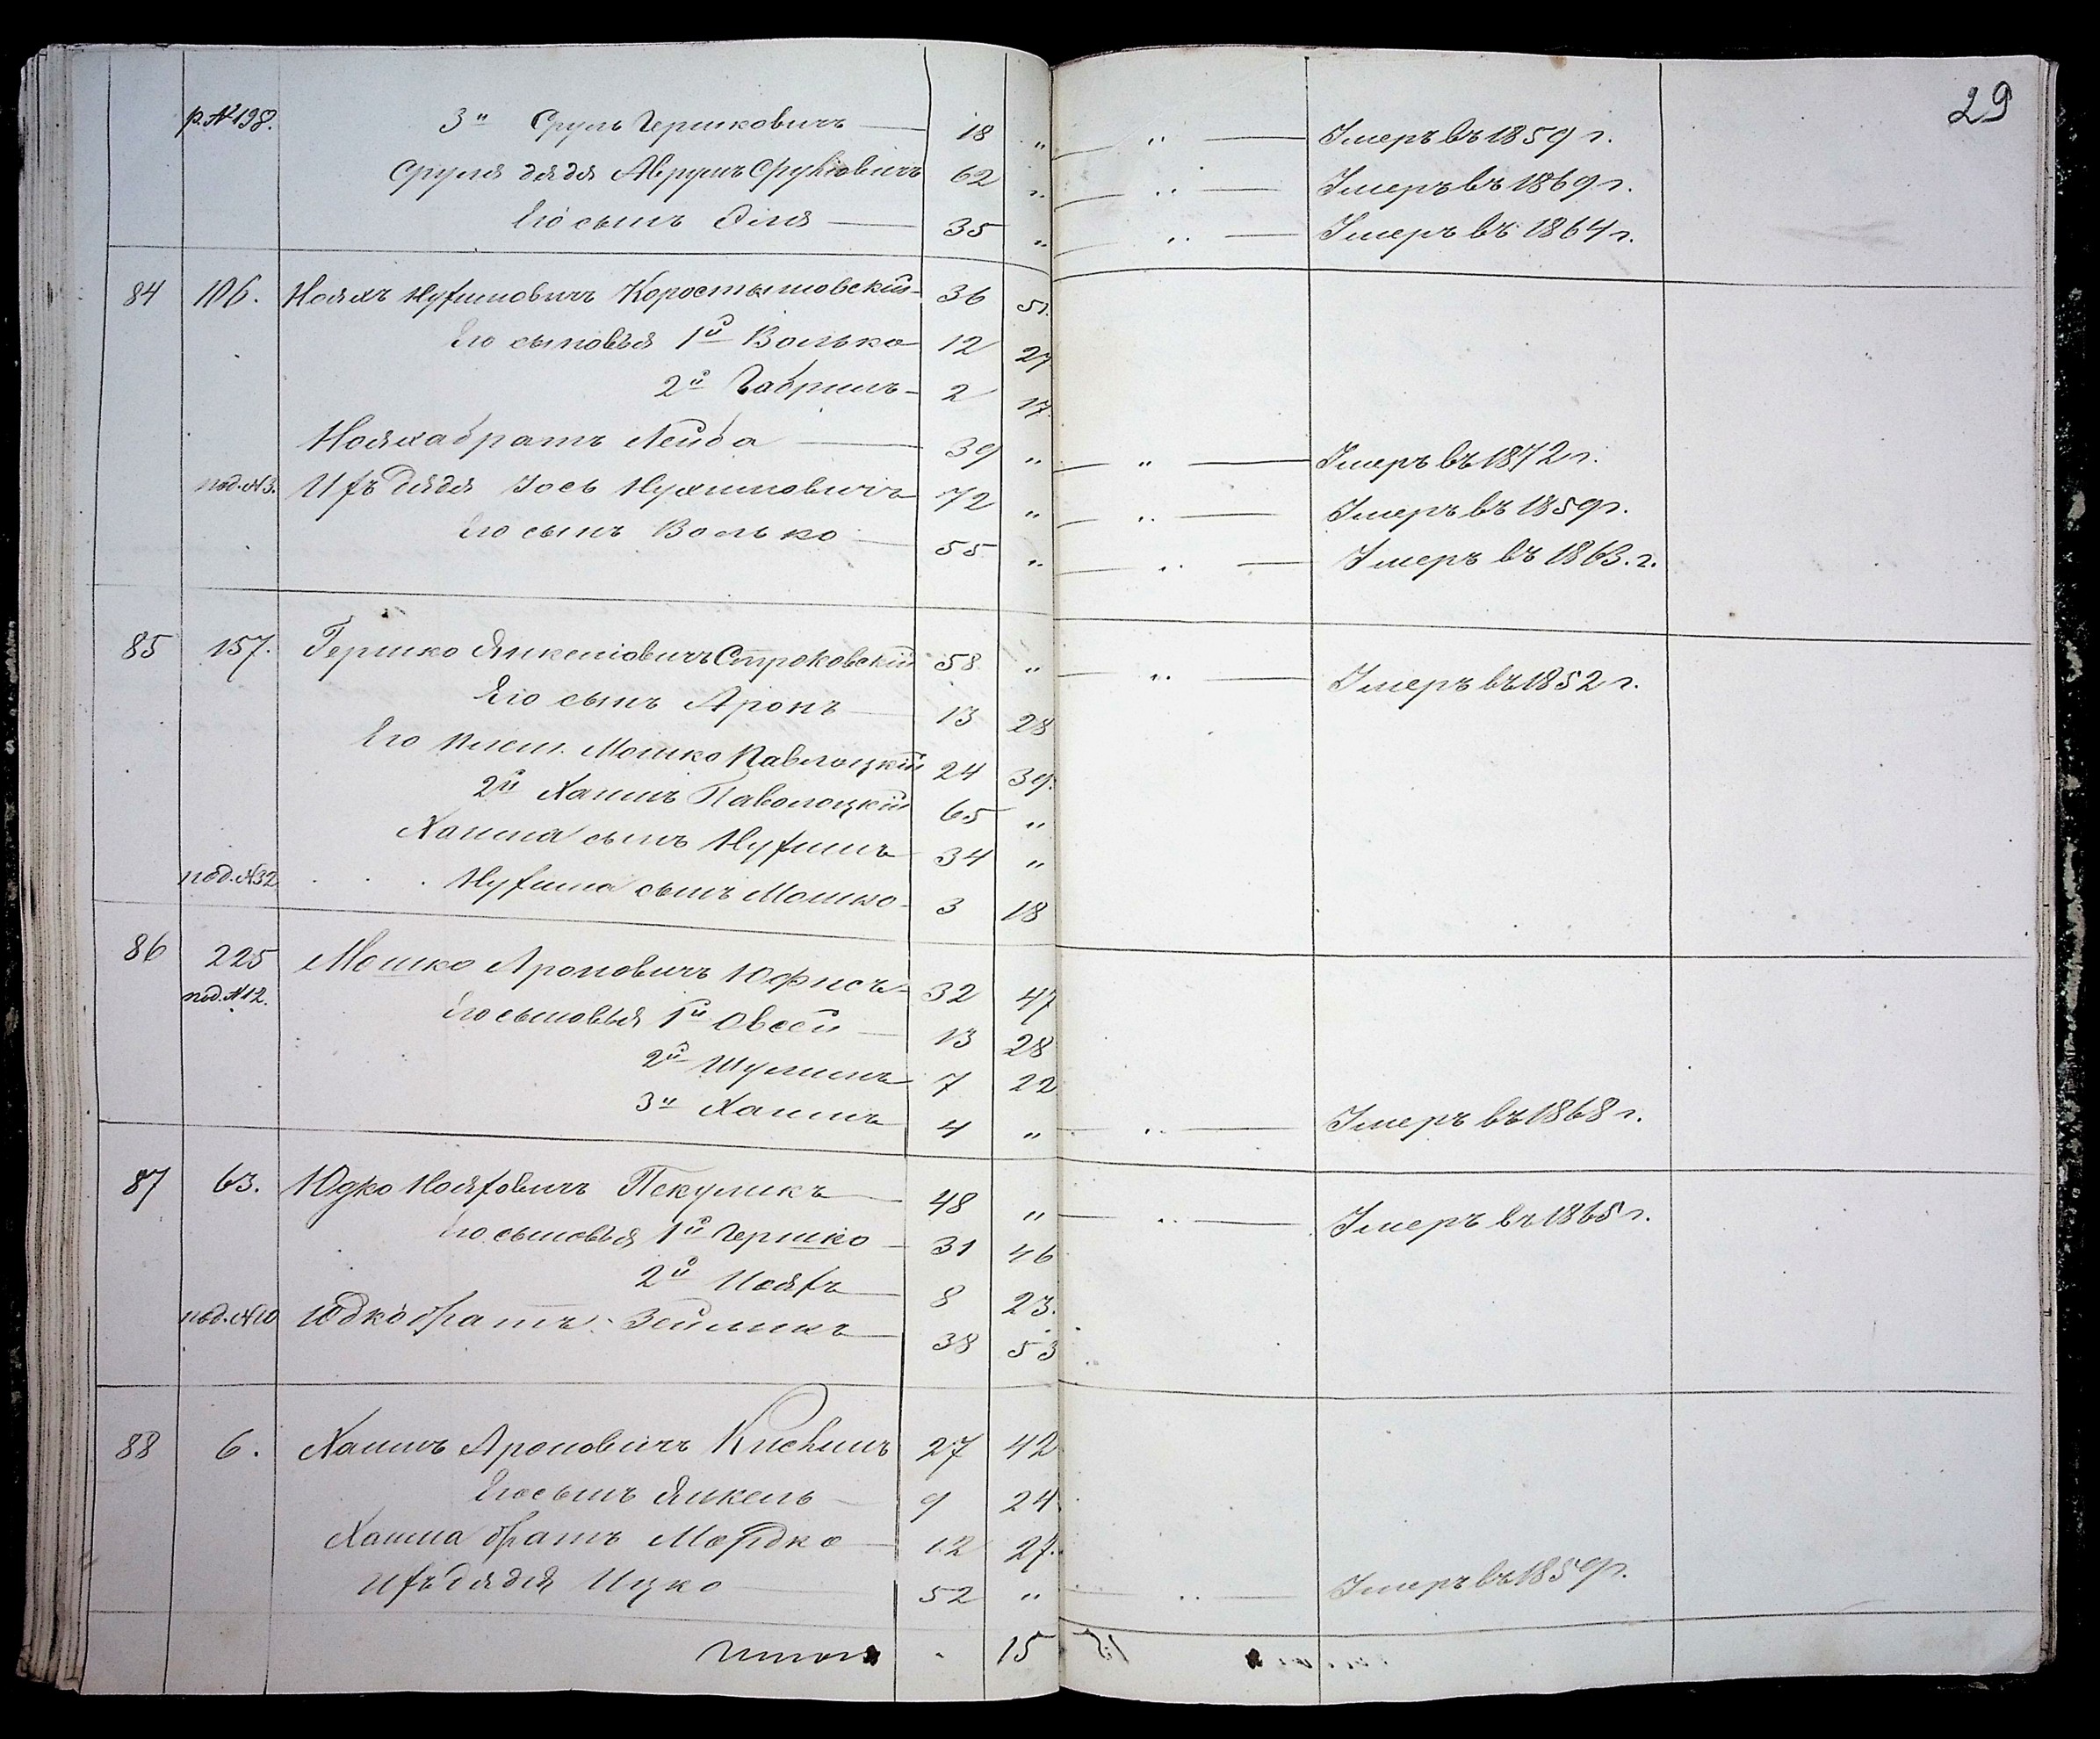 29
р. №198. 3й Сруль Гершковичъ 18 „ „ Умеръ въ 1859 г.
Сруля дядя Аврумъ Срулiовичъ 62 „ „ Умеръ въ 1869 г.
Его сынъ 35 „ „ Умеръ въ 1864 г.
84 106. Ноахъ Нухимовичъ Коростышовскiй 36 51.
Его сыновья 1й Волько 12 27
2й Габрилъ 2 17.
Нояха братъ Лейба 39 „ „ Умеръ въ 1872 г.
под. №3. Ихъ дядя Iось Нухимовичъ 72 „ „ Умеръ въ 1859 г.
Его сынъ Волько 55 „ „ Умеръ въ 1863. г.
85 157. Гершко Янкелiовичъ Строковскiй 58 „ „ Умеръ въ 1852 г.
Его сынъ Аронъ 13 28
Его плем. Мошко Павлоцкiй 24 39.
2й Хаимъ Паволоцкiй 65 „
Хаима сынъ Нухимъ 34 „
под. №32 Нухима сынъ Мошко 3 18
86 225 Мошко Ароновичъ 32 47
под. №12. Его сыновья 1й Овсей 13 28
2й Шулимъ 7 22
3й Хаимъ 4 „ „ Умеръ въ 1868 г.
87 63. Юдко Нояховичъ Пекуликъ 48 „ „ Умеръ въ 1865 г.
Его сыновья 1й Гершко 31 46
2й Нояхъ 8 23.
под. №10 Юдко братъ Зейликъ 38 53
88 6. Хаимъ Ароновичъ 27 42
Его сынъ Янкель 9 24
Хаима братъ Мордко 12 27.
Ихъ дядя Ицко 52 „ „ Умеръ въ 1859 г.
Итого 15